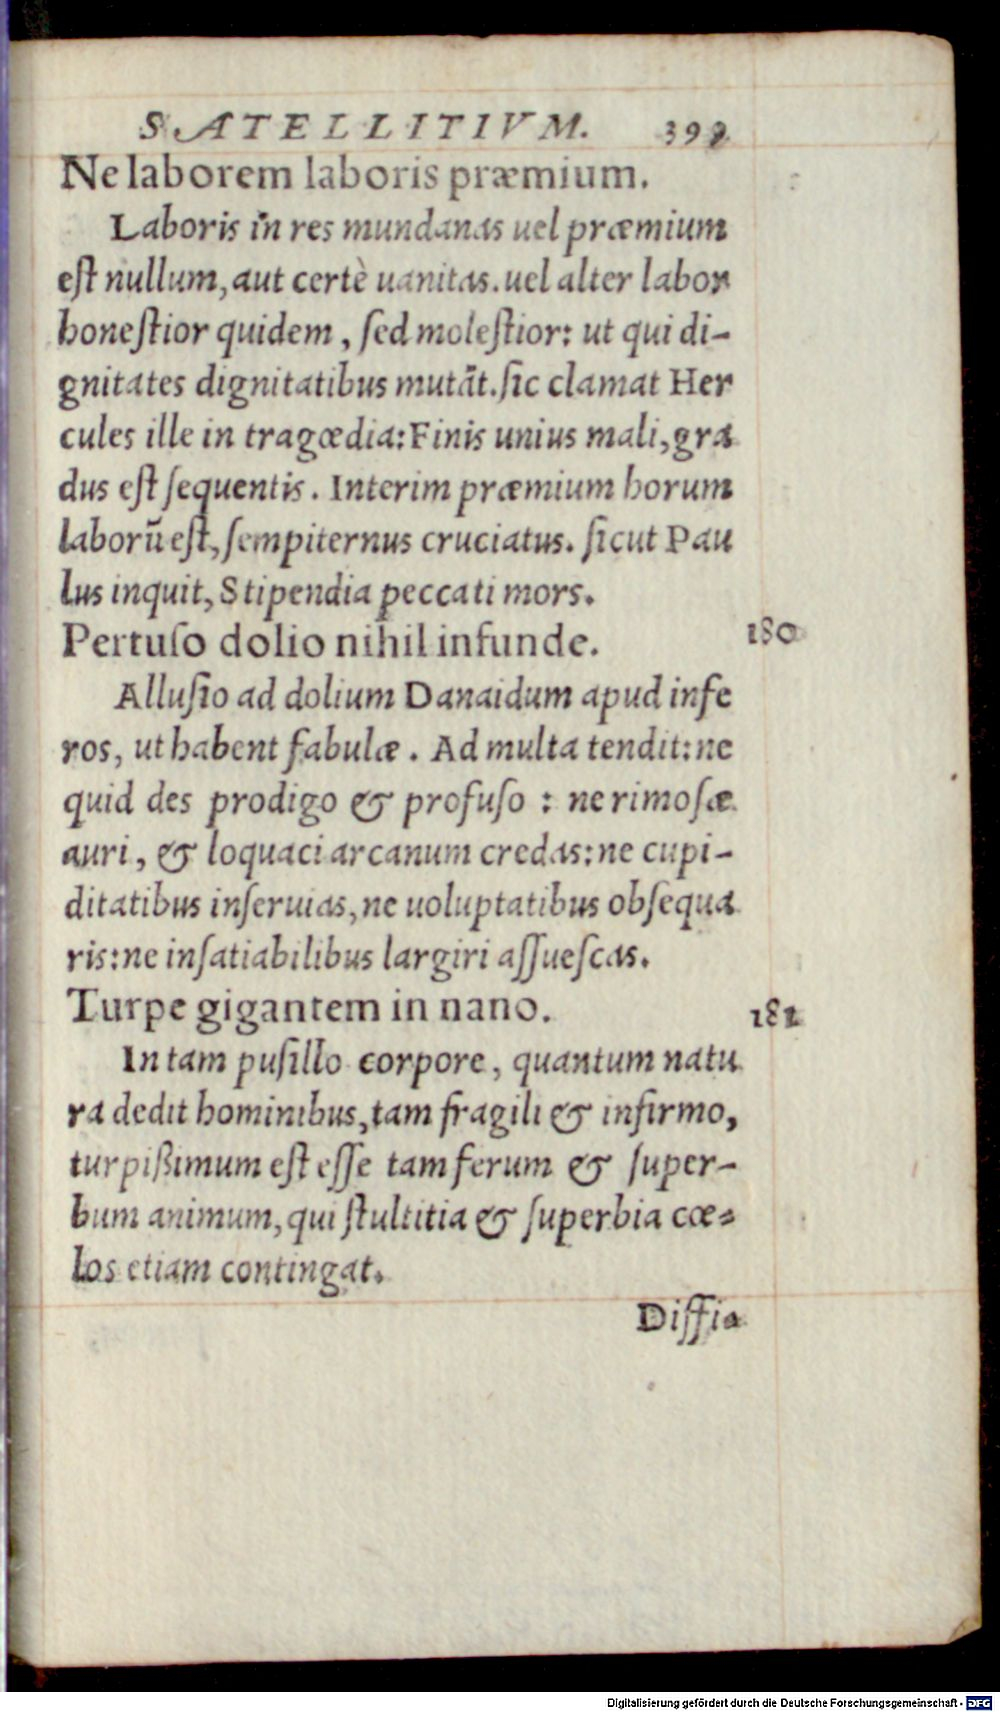 SATELLITIVM. 399
Ne laborem laboris præmium.
Laboris in res mundanas uel præmium
est nullum, aut certè uanitas. uel alter labor
honestior quidem, sed molestior: ut qui di-
gnitates dignitatibus mutāt. sic clamat Her
cules ille in tragœdia: Finis unius mali, gra
dus est sequentis. Interim præmium horum
laborū est, sempiternus cruciatus. sicut Pau
lus inquit, Stipendia peccati mors.
Pertuso dolio nihil infunde. 180
Allusio ad dolium Danaidum apud infe
ros, ut habent fabulæ. Ad multa tendit: ne
quid des prodigo & profuso : ne rimosæ
auri, & loquaci arcanum credas: ne cupi-
ditatibus inseruias, ne uoluptatibus obsequa
ris: ne insatiabilibus largiri assuescas.
Turpe gigantem in nano. 181
In tam pusillo corpore, quantum natu
ra dedit hominibus, tam fragili & infirmo,
turpißimum est esse tam ferum & super-
bum animum, qui stultitia & superbia cœ-
los etiam contingat.
Diffia
Digitalisierung gefördert durch die Deutsche Forschungsgemeinschaft - DFG